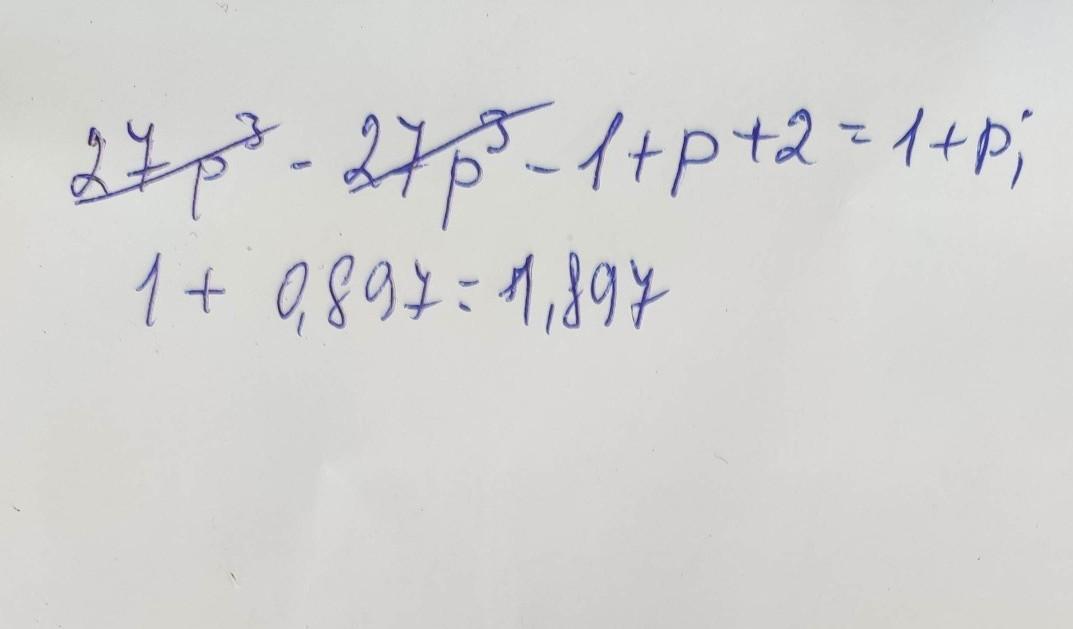 27p³ - 27p³ - 1 + p + 2 = 1 + p;
1 + 0,897 = 1,897